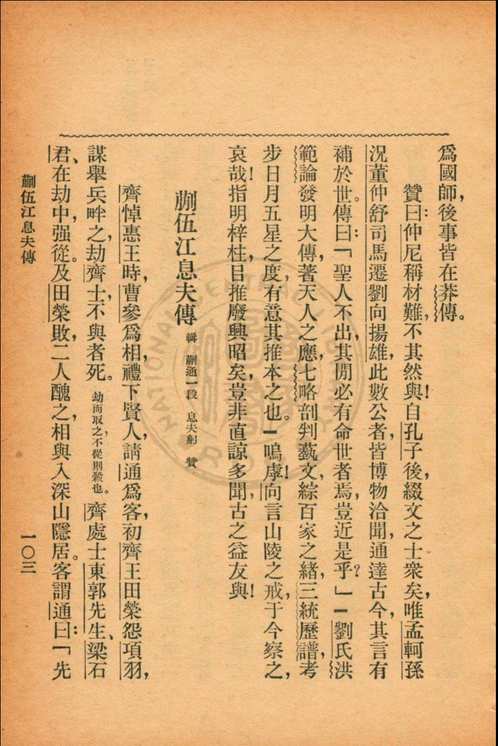 爲國師，後事皆在莽傳。
贊曰：仲尼稱材難，不其然與！自孔子後，綴文之士衆矣，唯孟軻孫
況董仲舒司馬遷劉向揚雄，此數公者，皆博物洽聞，通達古今，其言有
補於世。傳曰：「聖人不出，其間必有命世者焉，豈近是乎？」一劉氏洪
範論發明大傳，著天人之應；七略剖判藝文，綜百家之緒；三統歷譜，考
步日月五星之度，有意其推本之也。一嗚虖！向言山陵之戒，于今察之，
哀哉！指明梓柱，目推廢興，昭矣！豈非直諒多聞，古之益友與！
蒯伍江息夫傳 輯 蒯通一段 息夫躬 贊
齊悼惠王時，曹參爲相，禮下賢人，請通爲客。初，齊王田榮怨項羽，
謀舉兵畔之，劫齊士，不與者死。劫而取之，不從則殺也。齊處士東郭先生、梁石
君在劫中，強從。及田榮敗，二人醜之，相與入深山隱居。客謂通曰：「先
蒯伍江息夫傳
一〇三